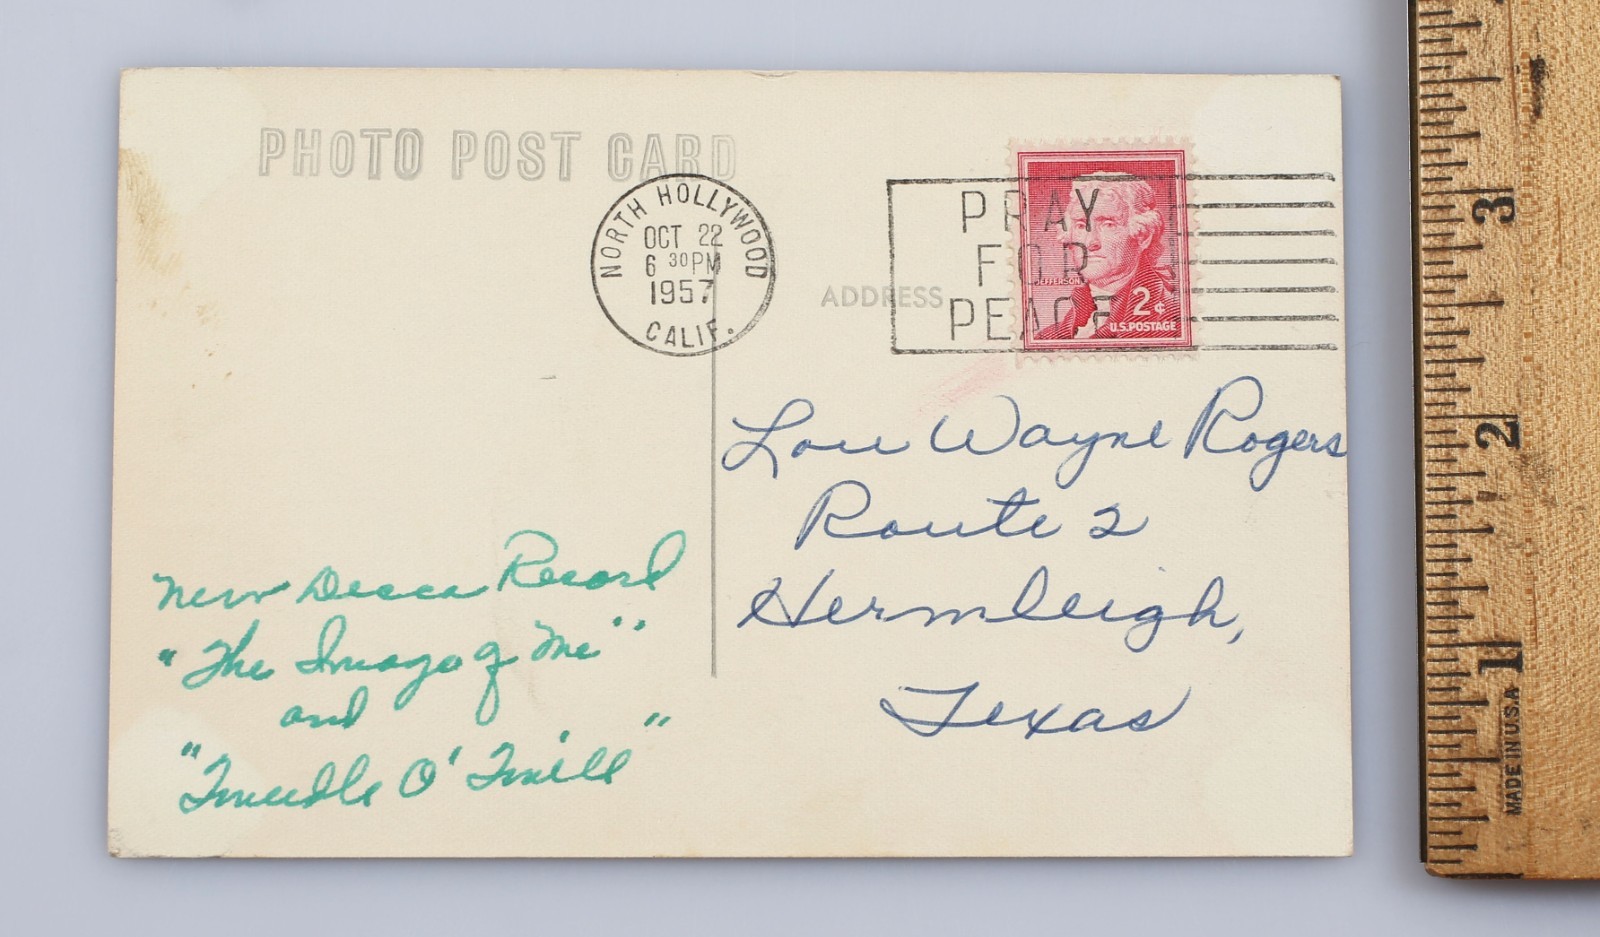 PHOTO POST CARD
NORTH HOLLYWOOD
OCT 22
6 30 PM
1957
CALIF.
PRAY
FOR
PEACE
ADDRESS
JEFFERSON
2¢
U.S. POSTAGE
Lou Wayne Rogers
Route 2
Hermleigh,
Texas
New Decca Record
"The Image of Me"
and
"Tweedle O' Twill"
3
2
1
MADE IN U.S.A